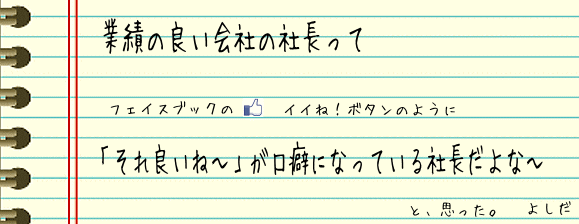 業績の良い会社の社長って
フェイスブックの イイね！ボタンのように
「それ良いね～」が口癖になっている社長だよな～
と、思った。 よしだ